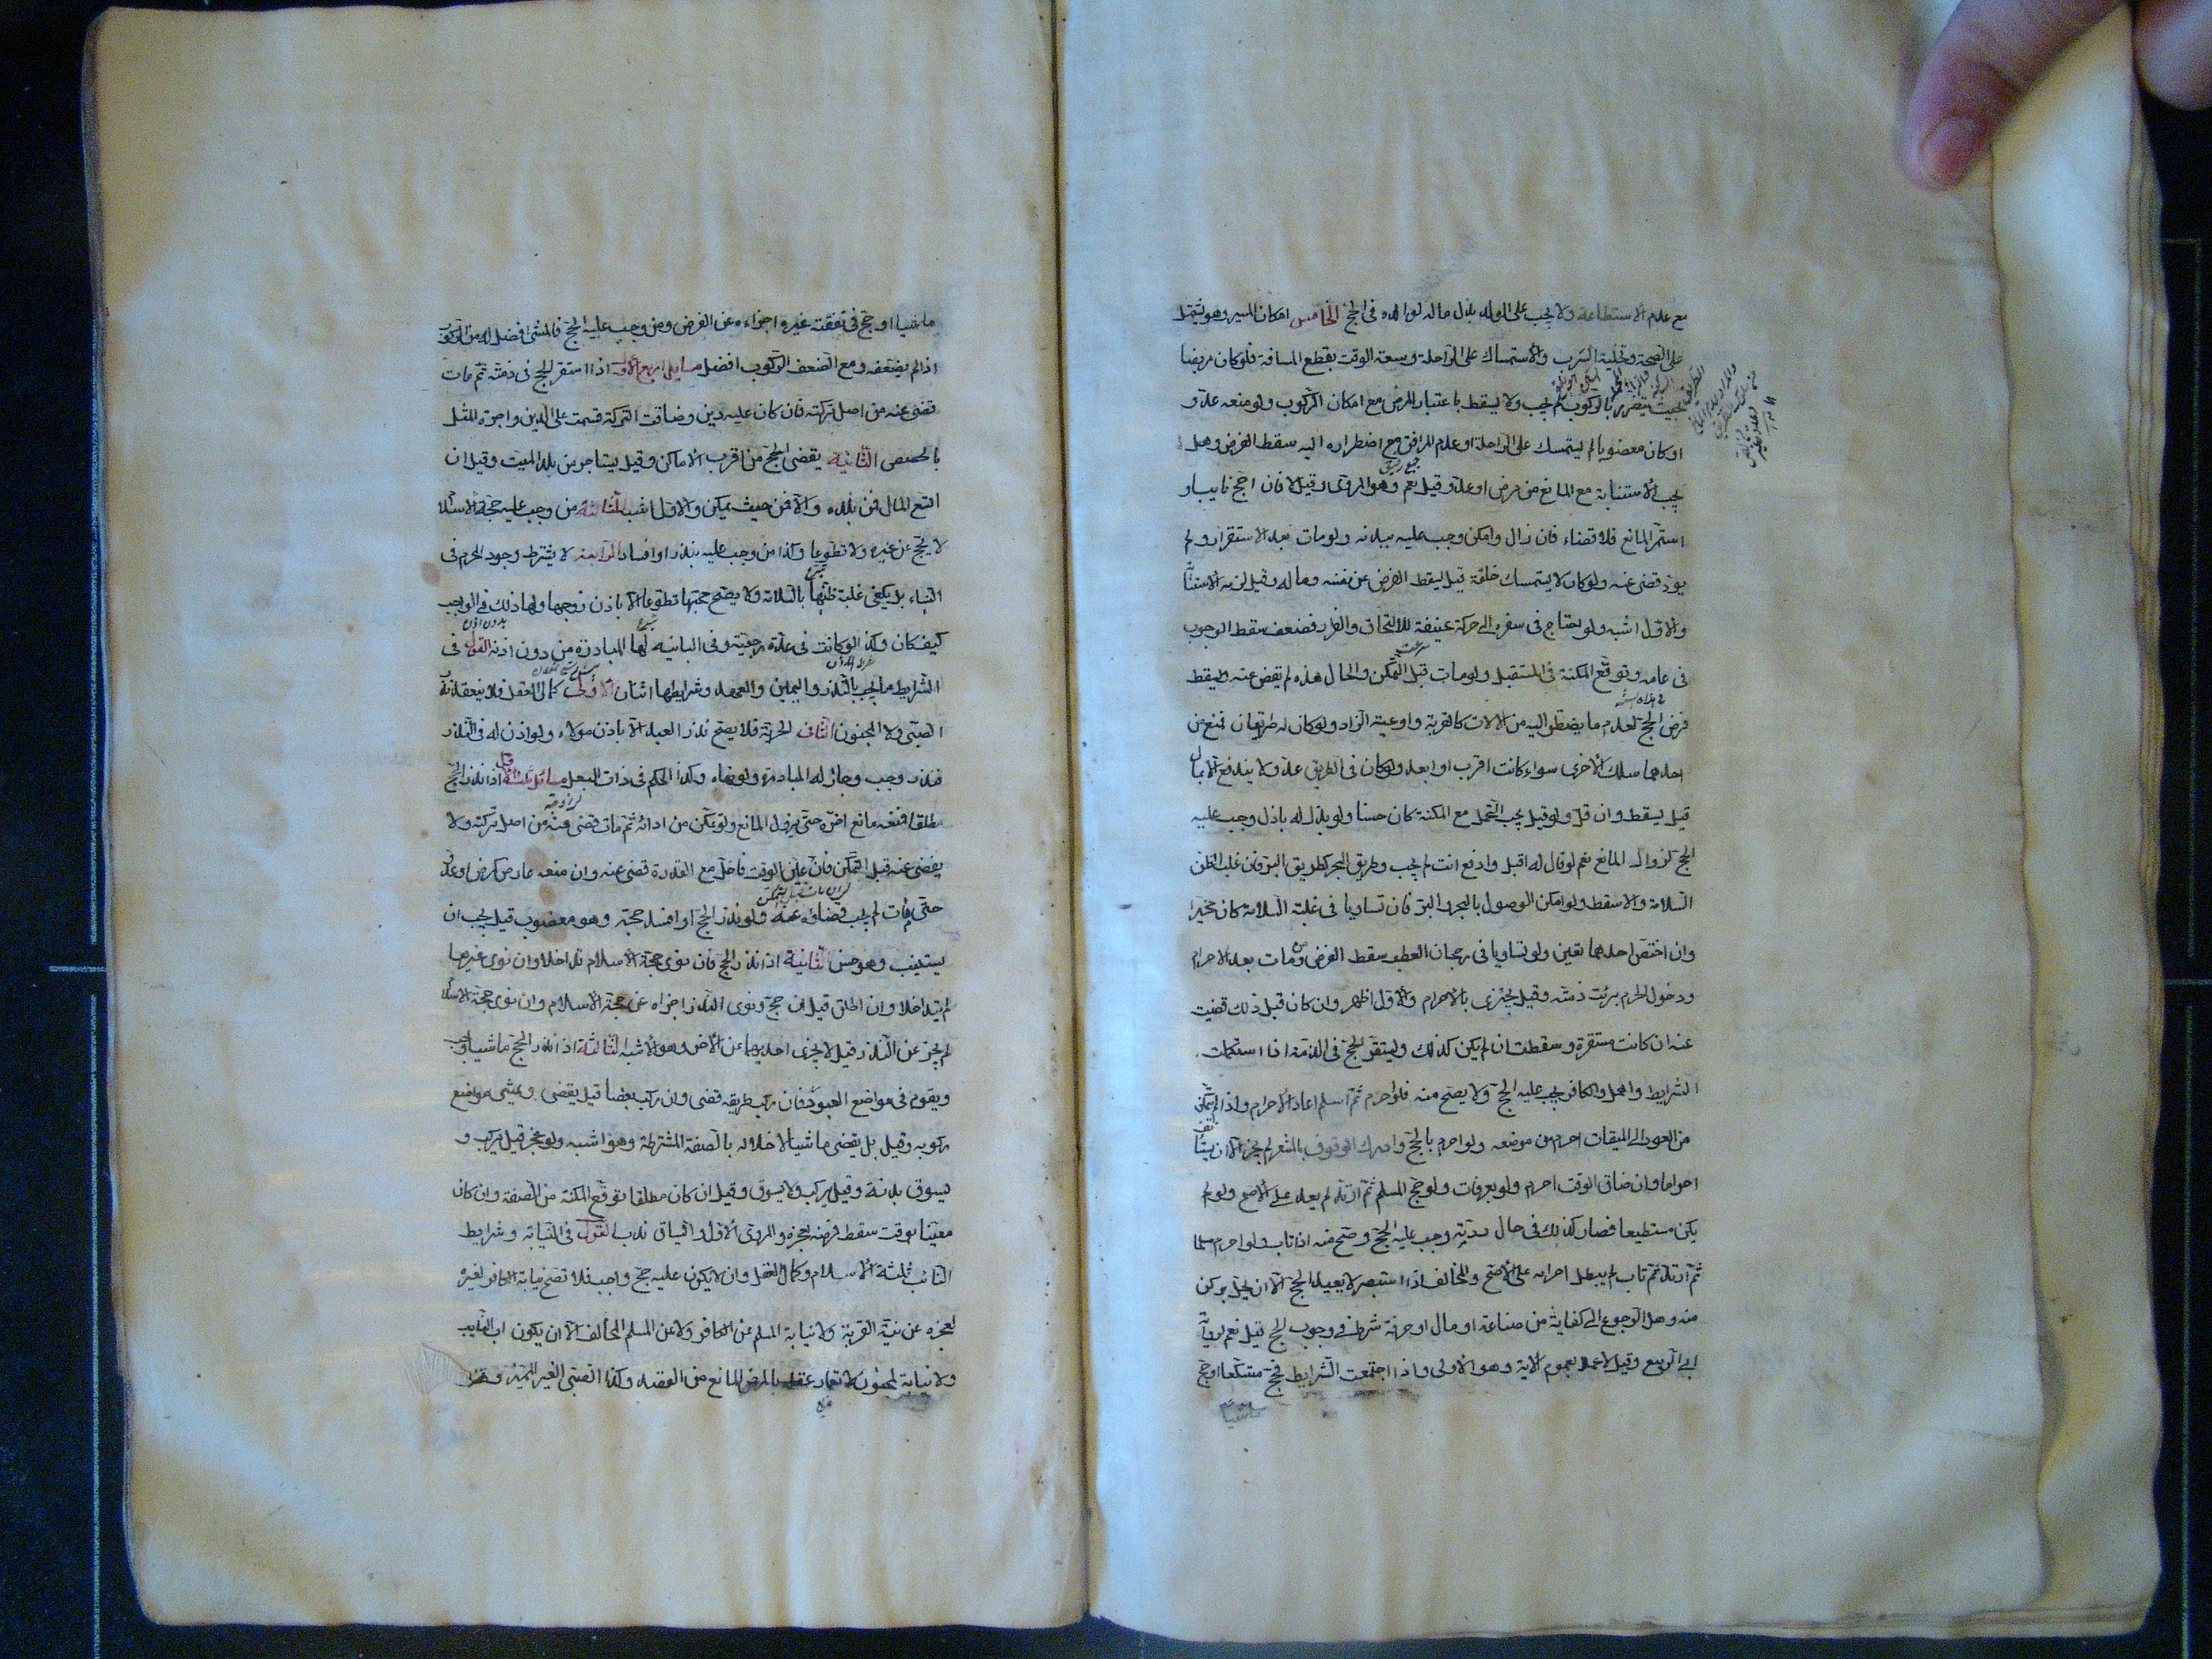 مع عدم الاستطاعة ولا يجب على الولد بذل ماله لوالده فى الحج الخامس امكان المسير وهو يشتمل
على الصحة وتخلية السرب والاستمساك على الراحلة وسعة الوقت بقطع المسافة فلو كان مريضا
بحيث يتضرر بالركوب لم يجب ولا يسقط باعتبار المرض مع امكان الركوب ولو منعه عدو
او كان معضوبا لم يستمسك على الراحلة او عدم المرافق مع اضطراره اليه سقط الفرض وهل
يجب الاستنابة مع المانع من مرض او عدو قيل نعم وهو المروى وقيل لا فان احج نايبا و
استمر المانع فلا قضاء فان زال وامكن وجب عليه ببدنه ولو مات بعد الاستقرار ولم
يؤد قضى عنه ولو كان لا يستمسك خلقة قيل يسقط الفرض عن نفسه وماله وقيل لزمه الاستنا
والاول اشبه ولو احتاج فى سفره الى حركة عنيفة للالتحاق والفرار فضعف سقط الوجوب
فى عامه وتوقع المكنة فى المستقبل ولو مات قبل التمكن والحال هذه لم يقض عنه ويسقط
فرض الحج لعدم ما يضطر اليه من الالات كالقربة واوعية الزاد ولو كان له طريقان فمنع من
احدهما سلك الاخرى سواء كانت اقرب او ابعد ولو كان فى الطريق عدو لا يندفع الا بمال
قيل يسقط وان قل ولو قيل يجب التحمل مع المكنة كان حسنا ولو بذل له باذل وجب عليه
الحج لزوال المانع نعم لو قال له اقبل وادفع انت لم يجب وطريق البحر كطريق البر فان غلب الظن
السلامة والا سقط ولو امكن الوصول بالبحر والبر فان تساويا فى غلبة السلامة كان مخيرا
وان اختص احدهما تعين ولو تساويا فى رجحان العطب سقط الفرض ومن مات بعد الاحرام
ودخول الحرم برئت ذمته وقيل يجتزى بالاحرام والاول اظهر وان كان قبل ذلك قضيت
عنه ان كانت مستقرة وسقطت ان لم يكن كذلك ويستقر الحج فى الذمة اذا استكملت
الشرايط واهمل والكافر يجب عليه الحج ولا يصح منه فلو احرم ثم اسلم اعاد الاحرام واذا لم يتمكن
من العود الى الميقات احرم من موضعه ولو احرم بالحج وادرك الوقوف بالمشعر لم يجز الا ان يستأنف
احراما وان ضاق الوقت احرم ولو بعرفات ولو حج المسلم ثم ارتد لم يعد على الاصح ولو لم
يكن مستطيعا فصار كذلك فى حال ردته وجب عليه الحج وصح منه اذا تاب ولو احرم مسلما
ثم ارتد ثم تاب لم يبطل احرامه على الاصح والمخالف اذا استبصر لا يعيد الحج الا ان يخل بركن
منه وهل الرجوع الى كفاية من صناعة او مال او حرفة شرط فى وجوب الحج قيل نعم لرواية
ابى الربيع وقيل لا عملا بعموم الاية وهو الاولى واذا اجتمعت الشرايط فحج متسكعا او حج
ماشيا
ماشيا او حج فى نفقة غيره اجزاءه عن الفرض ومن وجب عليه الحج فالمشى افضل له من الركوب
اذا لم يضعفه ومع الضعف الركوب افضل مسايل اربع الاولى اذا استقر الحج فى ذمته ثم مات
قضى عنه من اصل تركته فان كان عليه دين وضاقت التركة قسمت على الدين واجرة المثل
بالحصص الثانية يقضى الحج من اقرب الاماكن وقيل يستاجر من بلد الميت وقيل ان
اتسع المال فمن بلده والا فمن حيث يمكن والاول اشبه الثالثة من وجب عليه حجة الاسلا
لا يحج عن غيره ولا تطوعا وكذا من وجب عليه بنذر او افساد الرابعة لا يشترط وجود المحرم فى
النساء بل يكفى غلبة ظنها بالسلامة ولا يصح حجها تطوعا الا باذن زوجها ولها ذلك فى الواجب
كيف كان وكذا لو كانت فى عدة رجعية وفى البائنة لها المبادرة من دون اذنه القول فى
الشرايط ما يجب بالنذر واليمين والعهد وشرايطها اثنان الاول كمال العقل فلا ينعقد نذر
الصبى ولا المجنون الثانى الحرية فلا يصح نذر العبد الا باذن مولاه ولو اذن له فى النذر
فنذر وجب وجاز له المبادرة ولو نهاه وكذا الحكم فى ذات البعل مسائل ثلثة الاولى اذا نذر الحج
مطلقا فمنعه مانع اخره حتى يزول المانع ولو تمكن من ادائه ثم مات قضى عنه من اصل تركته ولا
يقضى عنه قبل التمكن فان عين الوقت فاخل مع القدرة قضى عنه وان منعه عارض كمرض او عدو
حتى مات لم يجب قضاؤه عنه ولو نذر الحج او افسد حجه وهو معضوب قيل يجب ان
يستنيب وهو حسن الثانية اذا نذر الحج فان نوى حجة الاسلام تداخلا وان نوى غيرها
لم يتداخلا وان اطلق قيل ان حج ونوى النذر اجزاه عن حجة الاسلام وان نوى حجة الاسلا
لم يجز عن النذر وقيل لا يجزى احديهما عن الاخر وهو الاشبه الثالثة اذا نذر الحج ماشيا وجب
ويقوم فى مواضع العبور فان ركب طريقه قضى وان ركب بعضا قيل يقضى ويمشى مواضع
ركوبه وقيل بل يقضى ماشيا لاخلاله بالصفة المشترطة وهو اشبه ولو عجز قيل يركب و
يسوق بدنة وقيل يركب ولا يسوق وقيل ان كان مطلقا توقع المكنة من الصفة وان كان
معينا بوقت سقط فرضه لعجزه والمروى الاول والسياق ندب القول فى النيابة وشرايط
النائب ثلثة الاسلام وكمال العقل وان لا يكون عليه حج واجب فلا تصح نيابة الكافر لغيره
لعجزه عن نية القربة ولا نيابة المسلم عن الكافر ولا عن المسلم المخالف الا ان يكون اب النايب
ولا نيابة المجنون لانغمار عقله بالمرض المانع من القصد وكذا الصبى الغير المميز وتصح